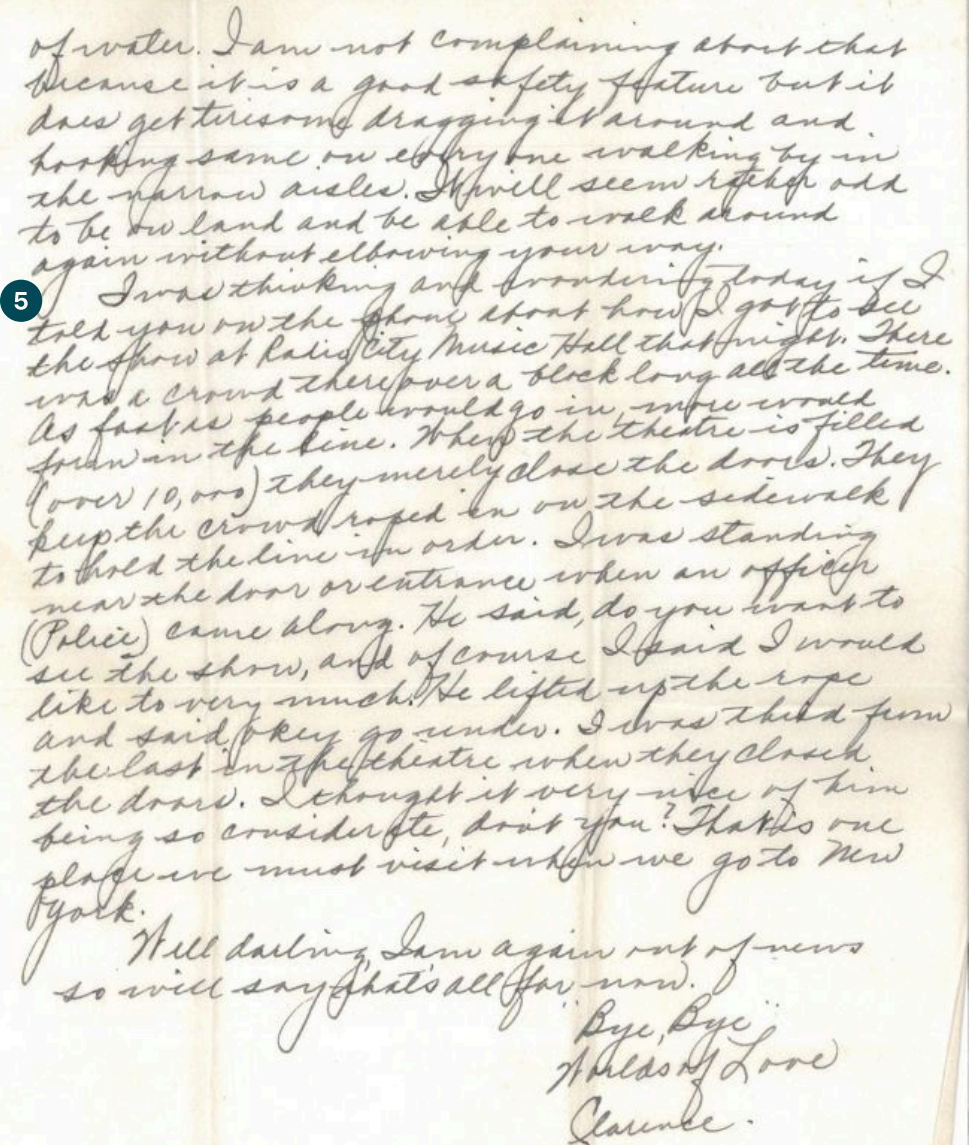 of water. I am not complaining about that
because it is a good safety feature but it
does get tiresome dragging it around and
hooking same on everyone walking by in
the narrow aisles. It will seem rather odd
to be on land and be able to walk around
again without elbowing your way.
5
I was thinking and wondering today if I
told you on the phone about how I got to see
the show at Radio City Music Hall that night. There
was a crowd there over a block long all the time.
As fast as people would go in, more would
form in the line. When the theatre is filled
(over 10,000) they merely close the doors. They
keep the crowd roped in on the sidewalk
to hold the line in order. I was standing
near the door or entrance when an officer
(Police) came along. He said, do you want to
see the show, and of course I said I would
like to very much. He lifted up the rope
and said okey go under. I was third from
the last in the theatre when they closed
the doors. I thought it very nice of him
being so considerate, don't you? That is one
place we must visit when we go to New
York.
Well darling, I am again out of news
so will say that's all for now.
"Bye, Bye"
Worlds of Love
Clarence.